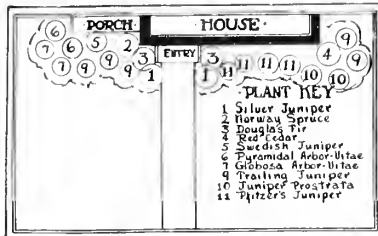 PORCH HOUSE
ENTRY
6 5 2 3 9 7 7 9 9 9 1
3 1 11 11 11 11 10 10 4 9 9
PLANT KEY
1 Silver Juniper
2 Norway Spruce
3 Douglas Fir
4 Red Cedar
5 Swedish Juniper
6 Pyramidal Arbor-Vitae
7 Globosa Arbor-Vitae
9 Trailing Juniper
10 Juniper Prostrata
11 Pfitzer's Juniper